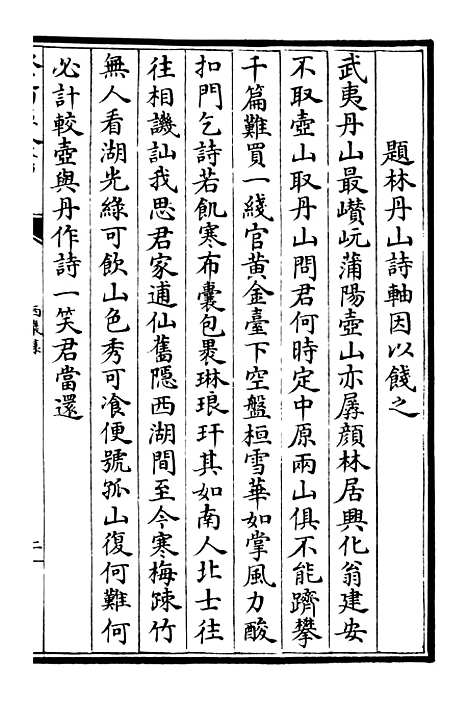 題林丹山詩軸因以餞之
武夷丹山最巑岏蒲陽壺山亦孱顔林居興化翁建安
不取壺山取丹山問君何時定中原兩山俱不能躋攀
千篇難買一綫官黄金臺下空盤桓雪華如掌風力酸
扣門乞詩若飢寒布囊包裹琳琅玕其如南人北士往
往相譏訕我思君家逋仙舊隱西湖間至今寒梅疎竹
無人看湖光綠可飲山色秀可飡便號孤山復何難何
必計較壺與丹作詩一笑君當還
西巖集
二